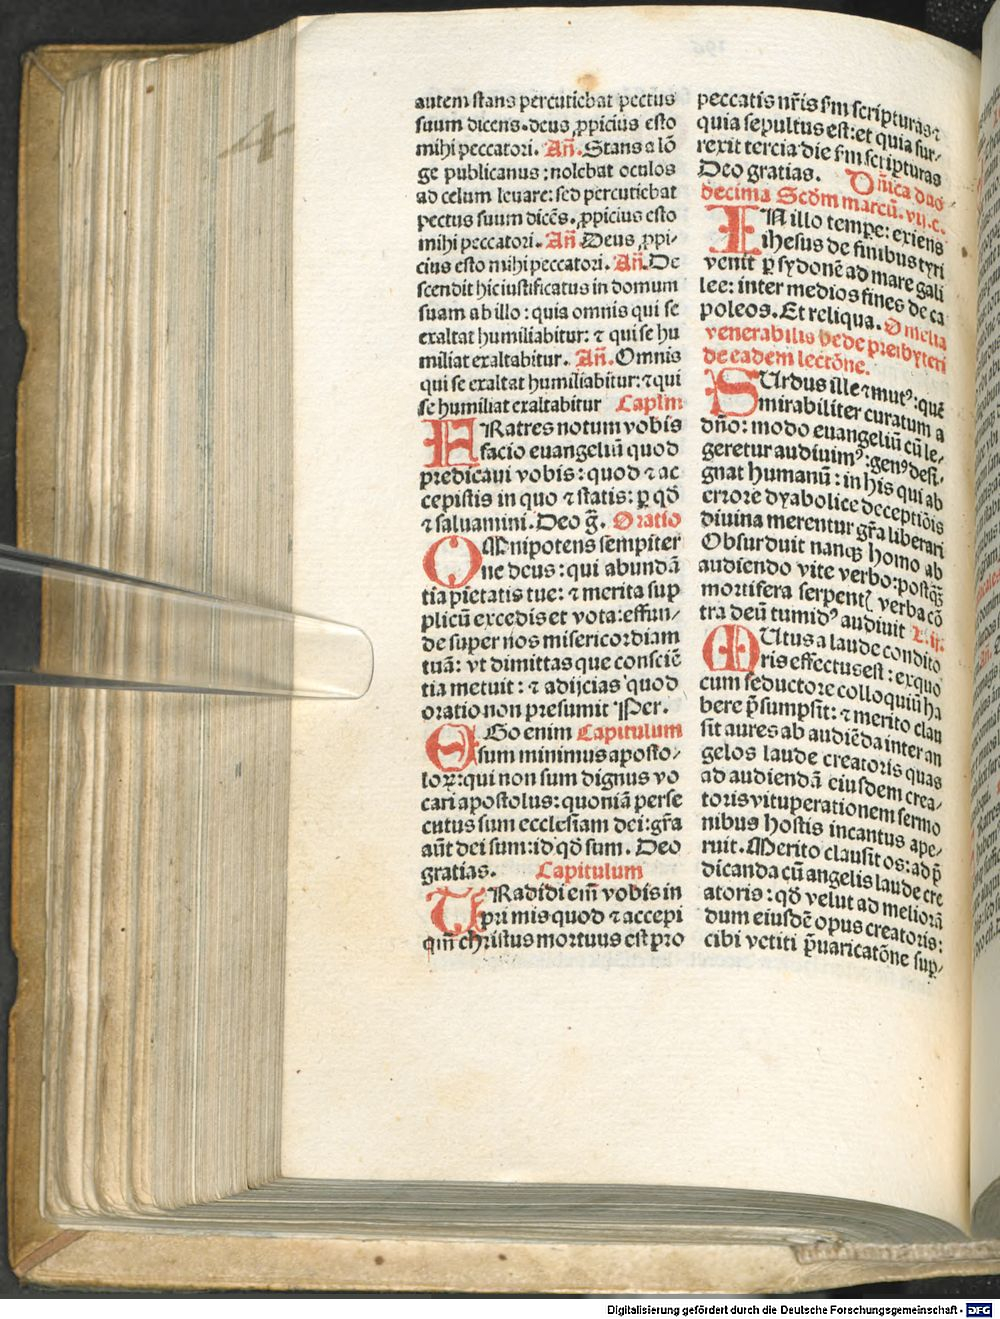 autem stans percutiebat pectus
suum dicens. deus ꝓpicius esto
mihi peccatori. Añ. Stans a lō
ge publicanus: nolebat oculos
ad celum leuare: sed percutiebat
pectus suum dicēs. ꝓpicius esto
mihi peccatori. Añ. Deus ꝓpi/
cius esto mihi peccatori. Añ. De
scendit hic iustificatus in domum
suam ab illo: quia omnis qui se
exaltat humiliabitur: ⁊ qui se hu
miliat exaltabitur. Añ. Omnis
qui se exaltat humiliabitur: ⁊ qui
se humiliat exaltabitur Caplm
FRatres notum vobis
facio euangeliū quod
predicaui vobis: quod ⁊ ac
cepistis in quo ⁊ statis: ꝑ qd̄
⁊ saluamini. Deo g̃. Oratio
OMnipotens sempiter
ne deus: qui abundā
tia pietatis tue: ⁊ merita sup
plicū excedis et vota: effun/
de super nos misericordiam
tuā: vt dimittas que consciē
tia metuit: ⁊ adijcias quod
oratio non presumit Per.
EGo enim Capitulum
sum minimus aposto/
loꝝ: qui non sum dignus vo
cari apostolus: quoniā perse
cutus sum ecclesiam dei: gr̄a
aūt dei sum: id qd̄ sum. Deo
gratias. Capitulum
TRadidi eim̄ vobis in
pri mis quod ⁊ accepi
qm̄ christus mortuus est pro
peccatis nr̄is fm scripturas ⁊
quia sepultus est: et quia sur/
rexit tercia die fm scripturas
Deo gratias. Dñica duo
decima Scd̄m marcū. vij. c.
IN illo tempe: exiens
ihesus de finibus tyri
venit ꝑ sydonē ad mare gali
lee: inter medios fines de ca
poleos. Et reliqua. Omelia
venerabilis bede presbyteri
de eadem lectōne.
SUrdus ille ⁊ mutꝰ: quē
mirabiliter curatum a
dño: modo euangeliū cū le/
geretur audiuimꝰ: genꝰ desi/
gnat humanū: in his qui ab
errore dyabolice deceptiōis
diuina merentur gr̄a liberari
Obsurduit nanqꝫ homo ab
audiendo vite verbo: postqꝫ̄
mortifera serpentꝭ verba cō
tra deū tumidꝰ audiuit L. ij.
MUtus a laude condito
ris effectus est: ex quo
cum seductore colloquiū ha
bere p̄sumpsit: ⁊ merito clau
sit aures ab audiēda inter an
gelos laude creatoris quas
ad audiendā eiusdem crea/
toris vituperationem sermo
nibus hostis incantus ape/
ruit. Merito clausit os: ad p̄
dicanda cū angelis laude cre
atoris: qd̄ velut ad meliorā
dum eiusdē opus creatoris:
cibi vetiti p̄uaricatōne sup/
Digitalisierung gefördert durch die Deutsche Forschungsgemeinschaft - DFG